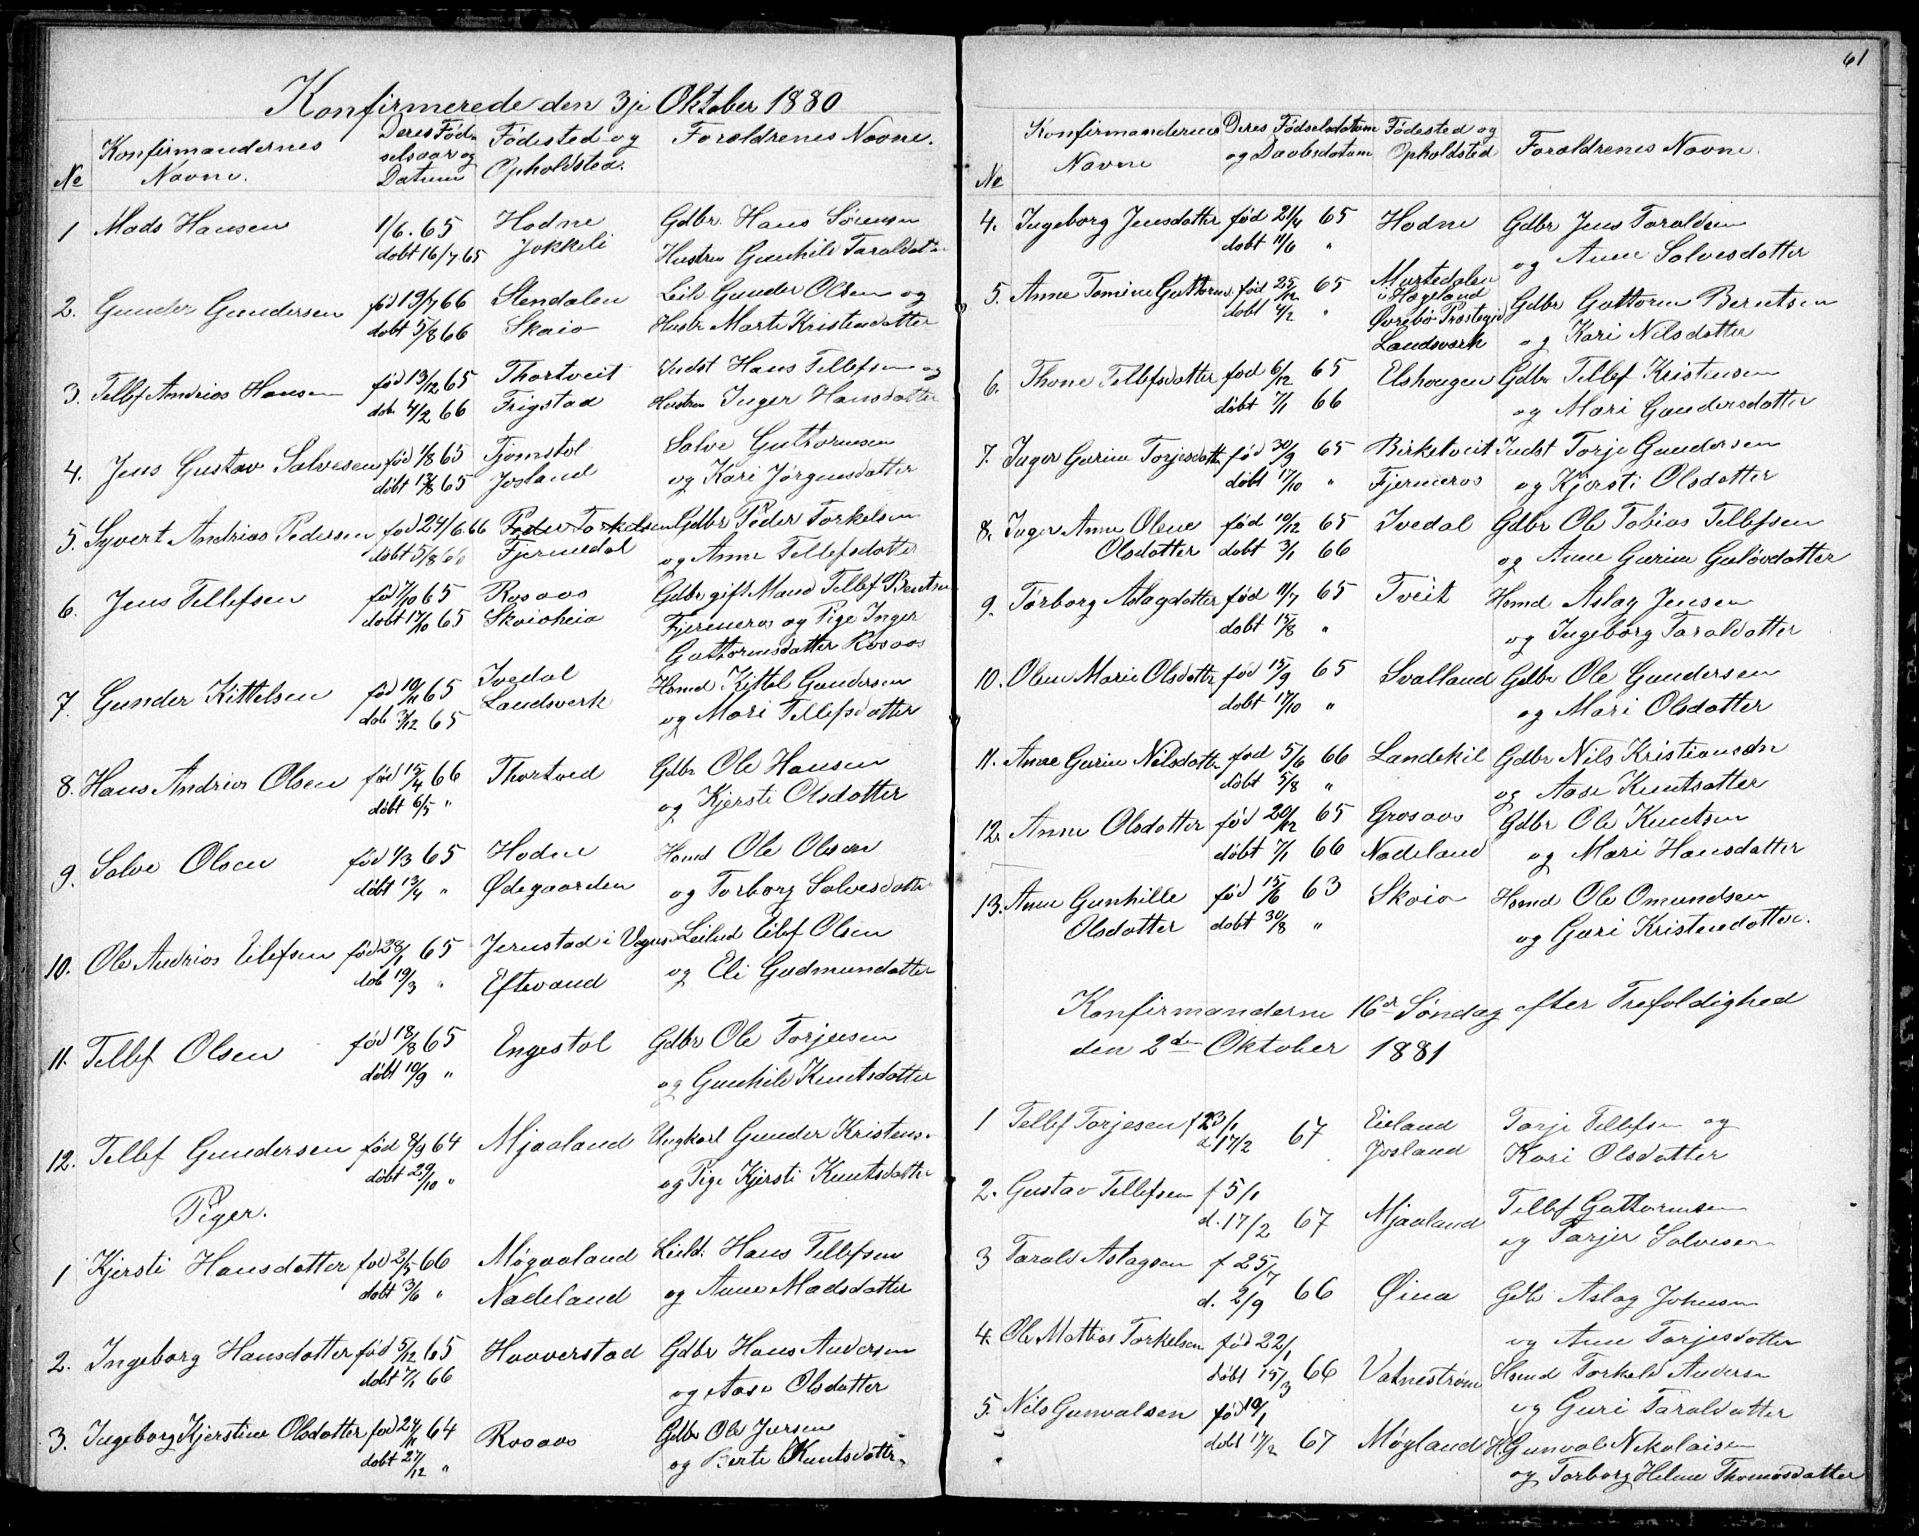 Konfirmerede den 3je Oktober 1880
No Konfirmandernes Navne. Deres Fødselsaar og Datum Fødested og Opholdsted. Forældrenes Navne.
1 Mads Hansen 1/6. 65 Hodne Gdbr. Hans Sørensen
døbt 16/7 65 Jokkeli Hustru Gunhild Taraldsdatter
2. Gunder Gundersen fød 19/7 66 Stendalen Leil. Gunder Olsen og
døbt 5/8 66 Skaio Hustr Marte Kristensdatter
3. Tellef Andrias Hansen fød 13/12 65 Thortveit Indst Hans Tellefsen og
døb. 4/2 66 Frigstad Hustru Inger Hansdatter
4. Jens Gustav Salvesen fød 1/8 65 Tjomstøl Salve Guttormsen
døbt 13/8 65 Josland og Kari Jørgensdatter
5. Syvert Andrias Pedersen fød 24/6 66 Peder Torkelsen Gdbr Peder Torkelsen
døbt 5/8 66 Fjermedal og Anne Tellefsdatter
6. Jens Tellefsen fød 7/10 65 Rosaas Gdbr gift Mand Tellef Berntsen
døbt 17/10 65 Skaioheia Fjermeros og Pige Inger
Guttormsdatter Rosaas
7. Gunder Kittelsen fød 10/11 65 Ivedal Hsmd Kittel Gundersen
døb 3/12 65 Landsverk og Mari Tellefsdatter
8. Hans Andrias Olsen fød 15/4 66 Thortved Gdbr Ole Hansen
døbt 6/5 " og Kjersti Olsdatter
9. Salve Olsen fød 1/3 65 Hodne Hsmd Ole Olsen
døbt 13/4 " Ødegaarden og Torborg Salvesdatter
10. Ole Andrias Eilefsen fød 28/1 65 Jerustad i Vegus. Leilnd Eilef Olsen
døb 19/3 " Eftevand og Eli Gudmundatter
11. Tellef Olsen fød 18/8 65 Engestøl Gdbr Ole Torjusen
døbt 10/9 " og Gunhild Knutsdatter
12. Tellef Gundersen fød 8/9 64 Mjaaland Ungkarl Gunder Kristens.
døbt 29/10 " og Pige Kjersti Knutsdatter
Piger.
1 Kjersti Hansdatter fød 2/5 66 Møgaaland Leild. Hans Tellefsen
døbt 3/6 " Nadeland og Anne Madsdatter
2. Ingeborg Hansdatter fød 5/12 65 Haaverstad Gdbr Hans Andersen
døbt 7/1 66 og Aase Olsdatter
3. Ingeborg Kjerstine Olsdatter fød 24/11 64 Rosaas Gdbr Ole Jensen
døbt 27/12 " og Berte Knutsdatter
61
No Konfirmandernes Navne Deres Fødselsdatum og Daabsdatum Fødested og Opholdsted Forældrenes Navne.
4. Ingeborg Jensdatter fød 21/4 65 Hodne Gdbr Jens Taraldsen
døbt 11/6 " og Anne Salvesdatter
5. Anne Tomine Guttorms. fød 25/12 65 Mustedalen i Hægeland Gdbr Guttorm Berntsen
døbt 4/2 " Øvrebø Præstegjd Landsværk og Kari Nilsdatter
6. Thone Tellefsdatter fød 6/12 65 Elshougen Gdbr Tellef Kristensen
døbt 7/1 66 og Mari Gundersdatter
7. Inger Gurine Torjesdatter fød 30/9 65 Birketveit Indst Torje Gundersen
døbt 17/10 " Fjermeros og Kjersti Olsdatter
8. Inger Anne Olene fød 10/12 65 Ivedal Gdbr Ole Tobias Tellefsen
Olsdatter døbt 3/1 66 og Anne Gurine Guløvdatter
9. Tørborg Aslagdatter fød 11/7 65 Tveit Hsmd Aslag Jensen
døbt 15/8 " og Ingeborg Taraldatter
10. Olene Marie Olsdatter fød 15/9 65 Svalland Gdbr Ole Gundersen
døbt 17/10 " og Mari Olsdatter
11. Anne Gurine Nilsdatter fød 5/6 66 Landekil Gdbr Nils Kristiansdn
døbt 5/8 " og Aase Knutsatter
12. Anne Olsdatter fød 20/12 65 Grosaas Gdbr Ole Knutsen
døbt 7/1 66 Nadeland og Mari Hansdatter
13. Anne Gunhille fød 15/6 63 Skaio Hsmd Ole Omundsen
Olsdatter døbt 30/8 " og Guri Kristensdatter.
Konfirmanderne 16de Søndag efter Trefoldighed
den 2den Oktober 1881
1 Tellef Torjesen f 23/1 Eieland Torje Tellefsen og
d 17/2 67 Josland Kari Olsdatter
2. Gustav Tellefsen f 5/1 Tellef Guttormsen
d. 17/2 67 Mjaaland og Tarjer Salvesen
3 Tarald Aslagsen f 25/7
d. 2/9 66 Øina Gdb Aslag Johnsen
4. Ole Mathias Torkelsen fød 22/1 og Anne Torjesdatter
døbt 15/3 66 Vatnestrøm Hsmd Torkeld Anders
5. Nils Gunvalsen fød 10/1 og Guri Taraldatter
døbt 17/2 67 Møgland H. Gunval Nikolaisen
og Torborg Heline Thomasdatter